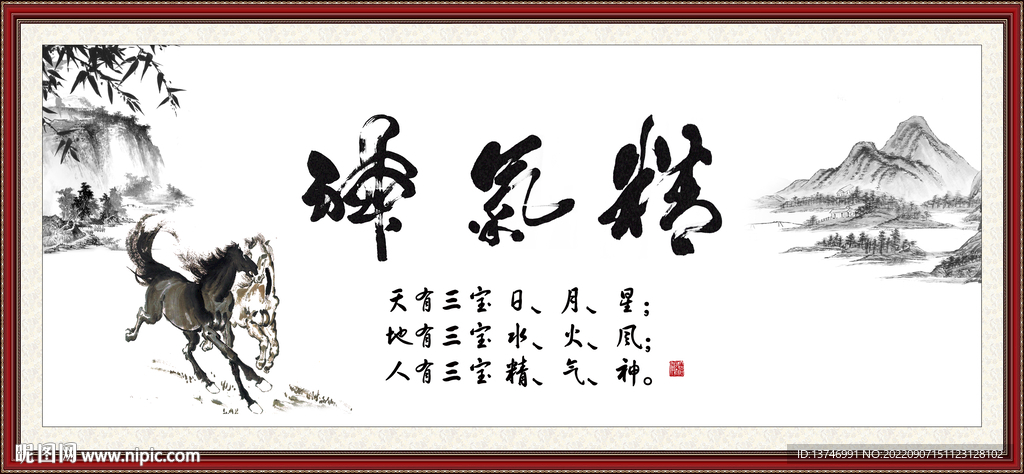 精氣神
天有三宝日、月、星；
地有三宝水、火、风；
人有三宝精、气、神。
LAZ
昵图网 www.nipic.com
ID:13746991 NO:20220907151123128102